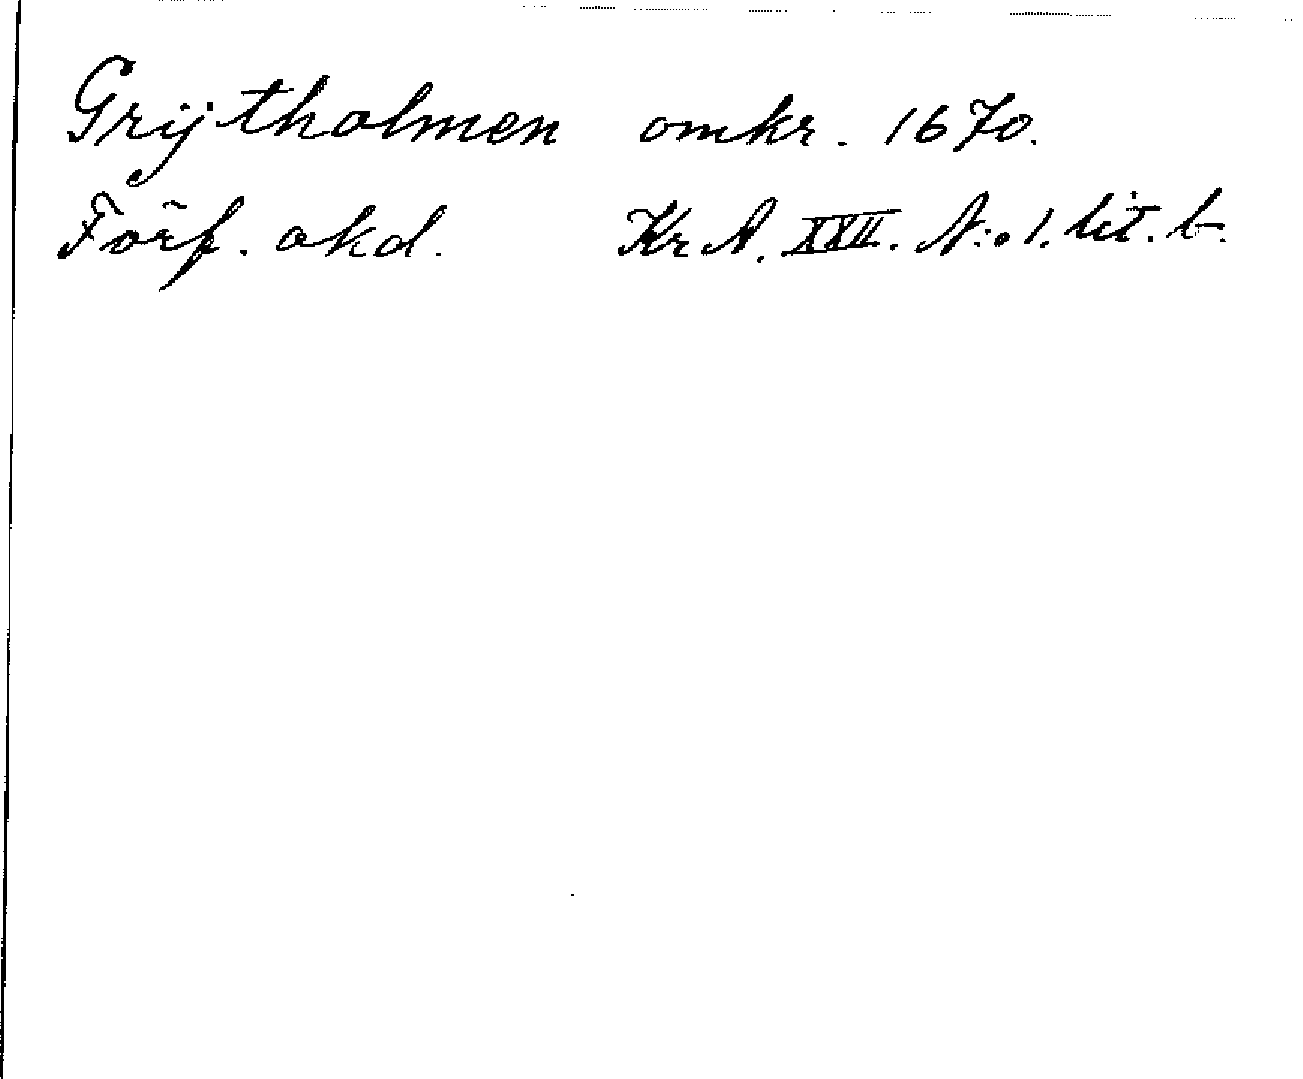 Grijtholmen omkr. 1670.
Förf. okd. Kr A. XXII. N:o 1. lit. b.